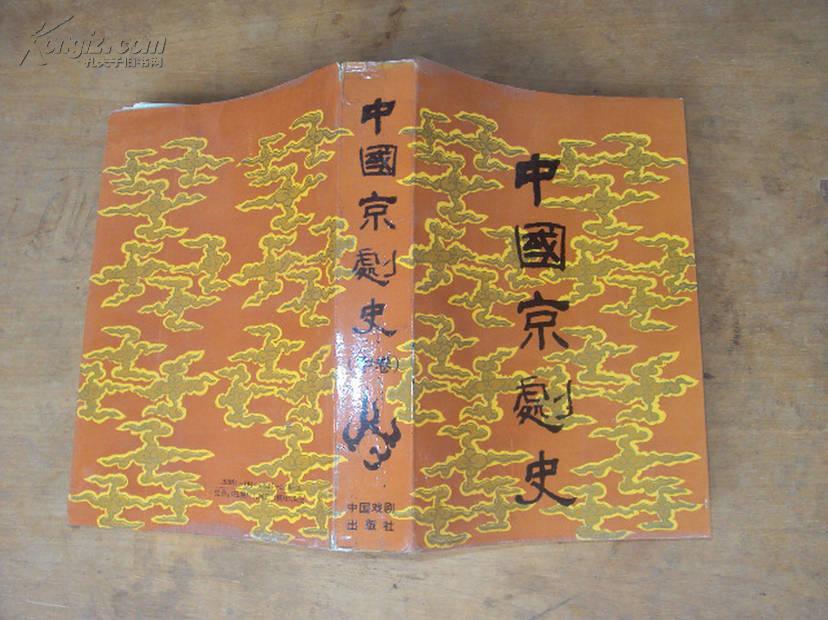 Kongfz.com
孔夫子旧书网
中國京劇史
(中卷)
中国戏剧
出版社
中國京劇史